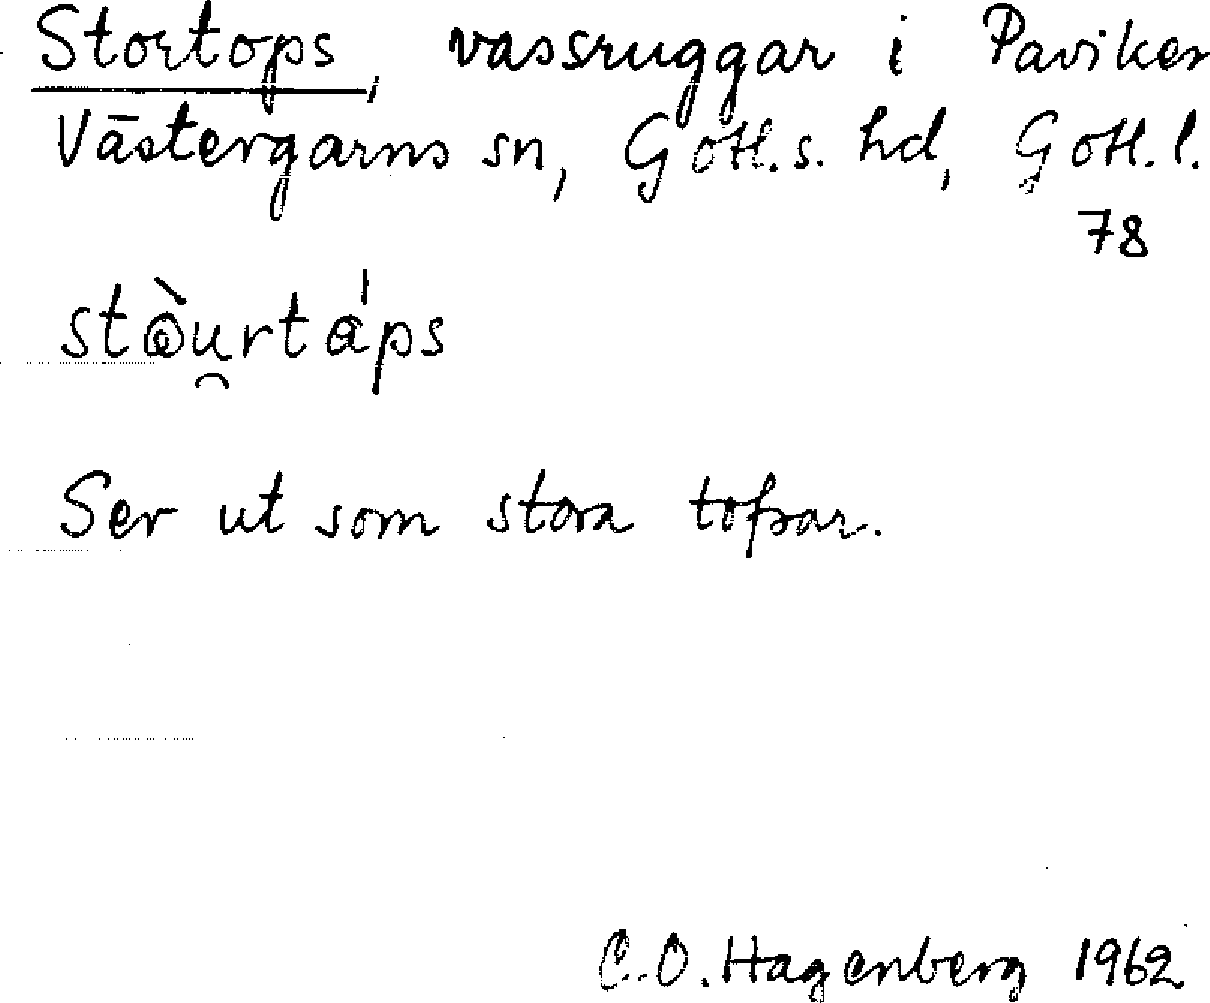 Stortops, vassruggar i Paviken
Västergarns sn, Gotl. s. hd, Gotl. l.
78
stɷ̀u̯rtáps
Ser ut som stora tofsar.
C. O. Hagenberg 1962